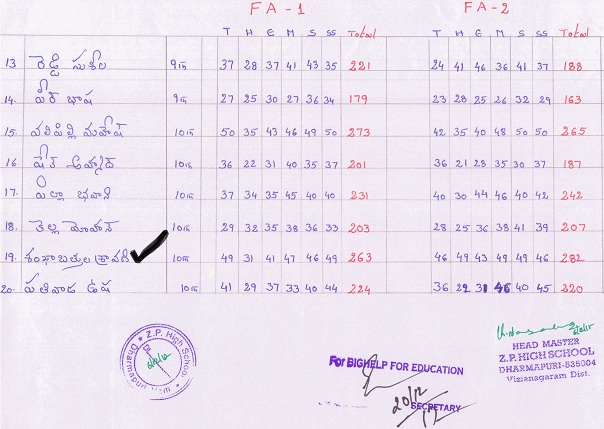 FA - 1 FA - 2
T H E M S SS Total T H E M S SS Total
13 రెడ్డి సుశీల 9th 37 28 37 41 43 35 221 24 41 46 36 41 188
14. పీర్ భాష 9th 27 25 30 27 36 34 179 23 28 25 26 32 29 163
15. మహేష్ 10th 50 35 43 46 49 50 273 42 35 40 48 50 50 265
16 షేక్ 10th 36 22 31 40 35 37 201 36 21 28 35 30 37 187
17. పిల్లా భవాని 10th 37 34 35 45 40 40 231 40 30 44 46 40 42 242
18. తెల్ల మోహన్ 10th 29 32 35 38 36 33 203 28 25 36 38 41 39 207
19. శంఖాబత్తుల శ్రావణి 10th 49 31 41 47 46 49 263 46 49 43 49 49 46 282
20. పతివాడ ఉష 10th 41 29 37 33 40 44 224 36 29 31 46 40 45 220
Z.P. High School
For BIGHELP FOR EDUCATION
20/12
SECRETARY
HEAD MASTER
Z.P. HIGH SCHOOL
DHARMAPURI-535004
Vizianagaram Dist.